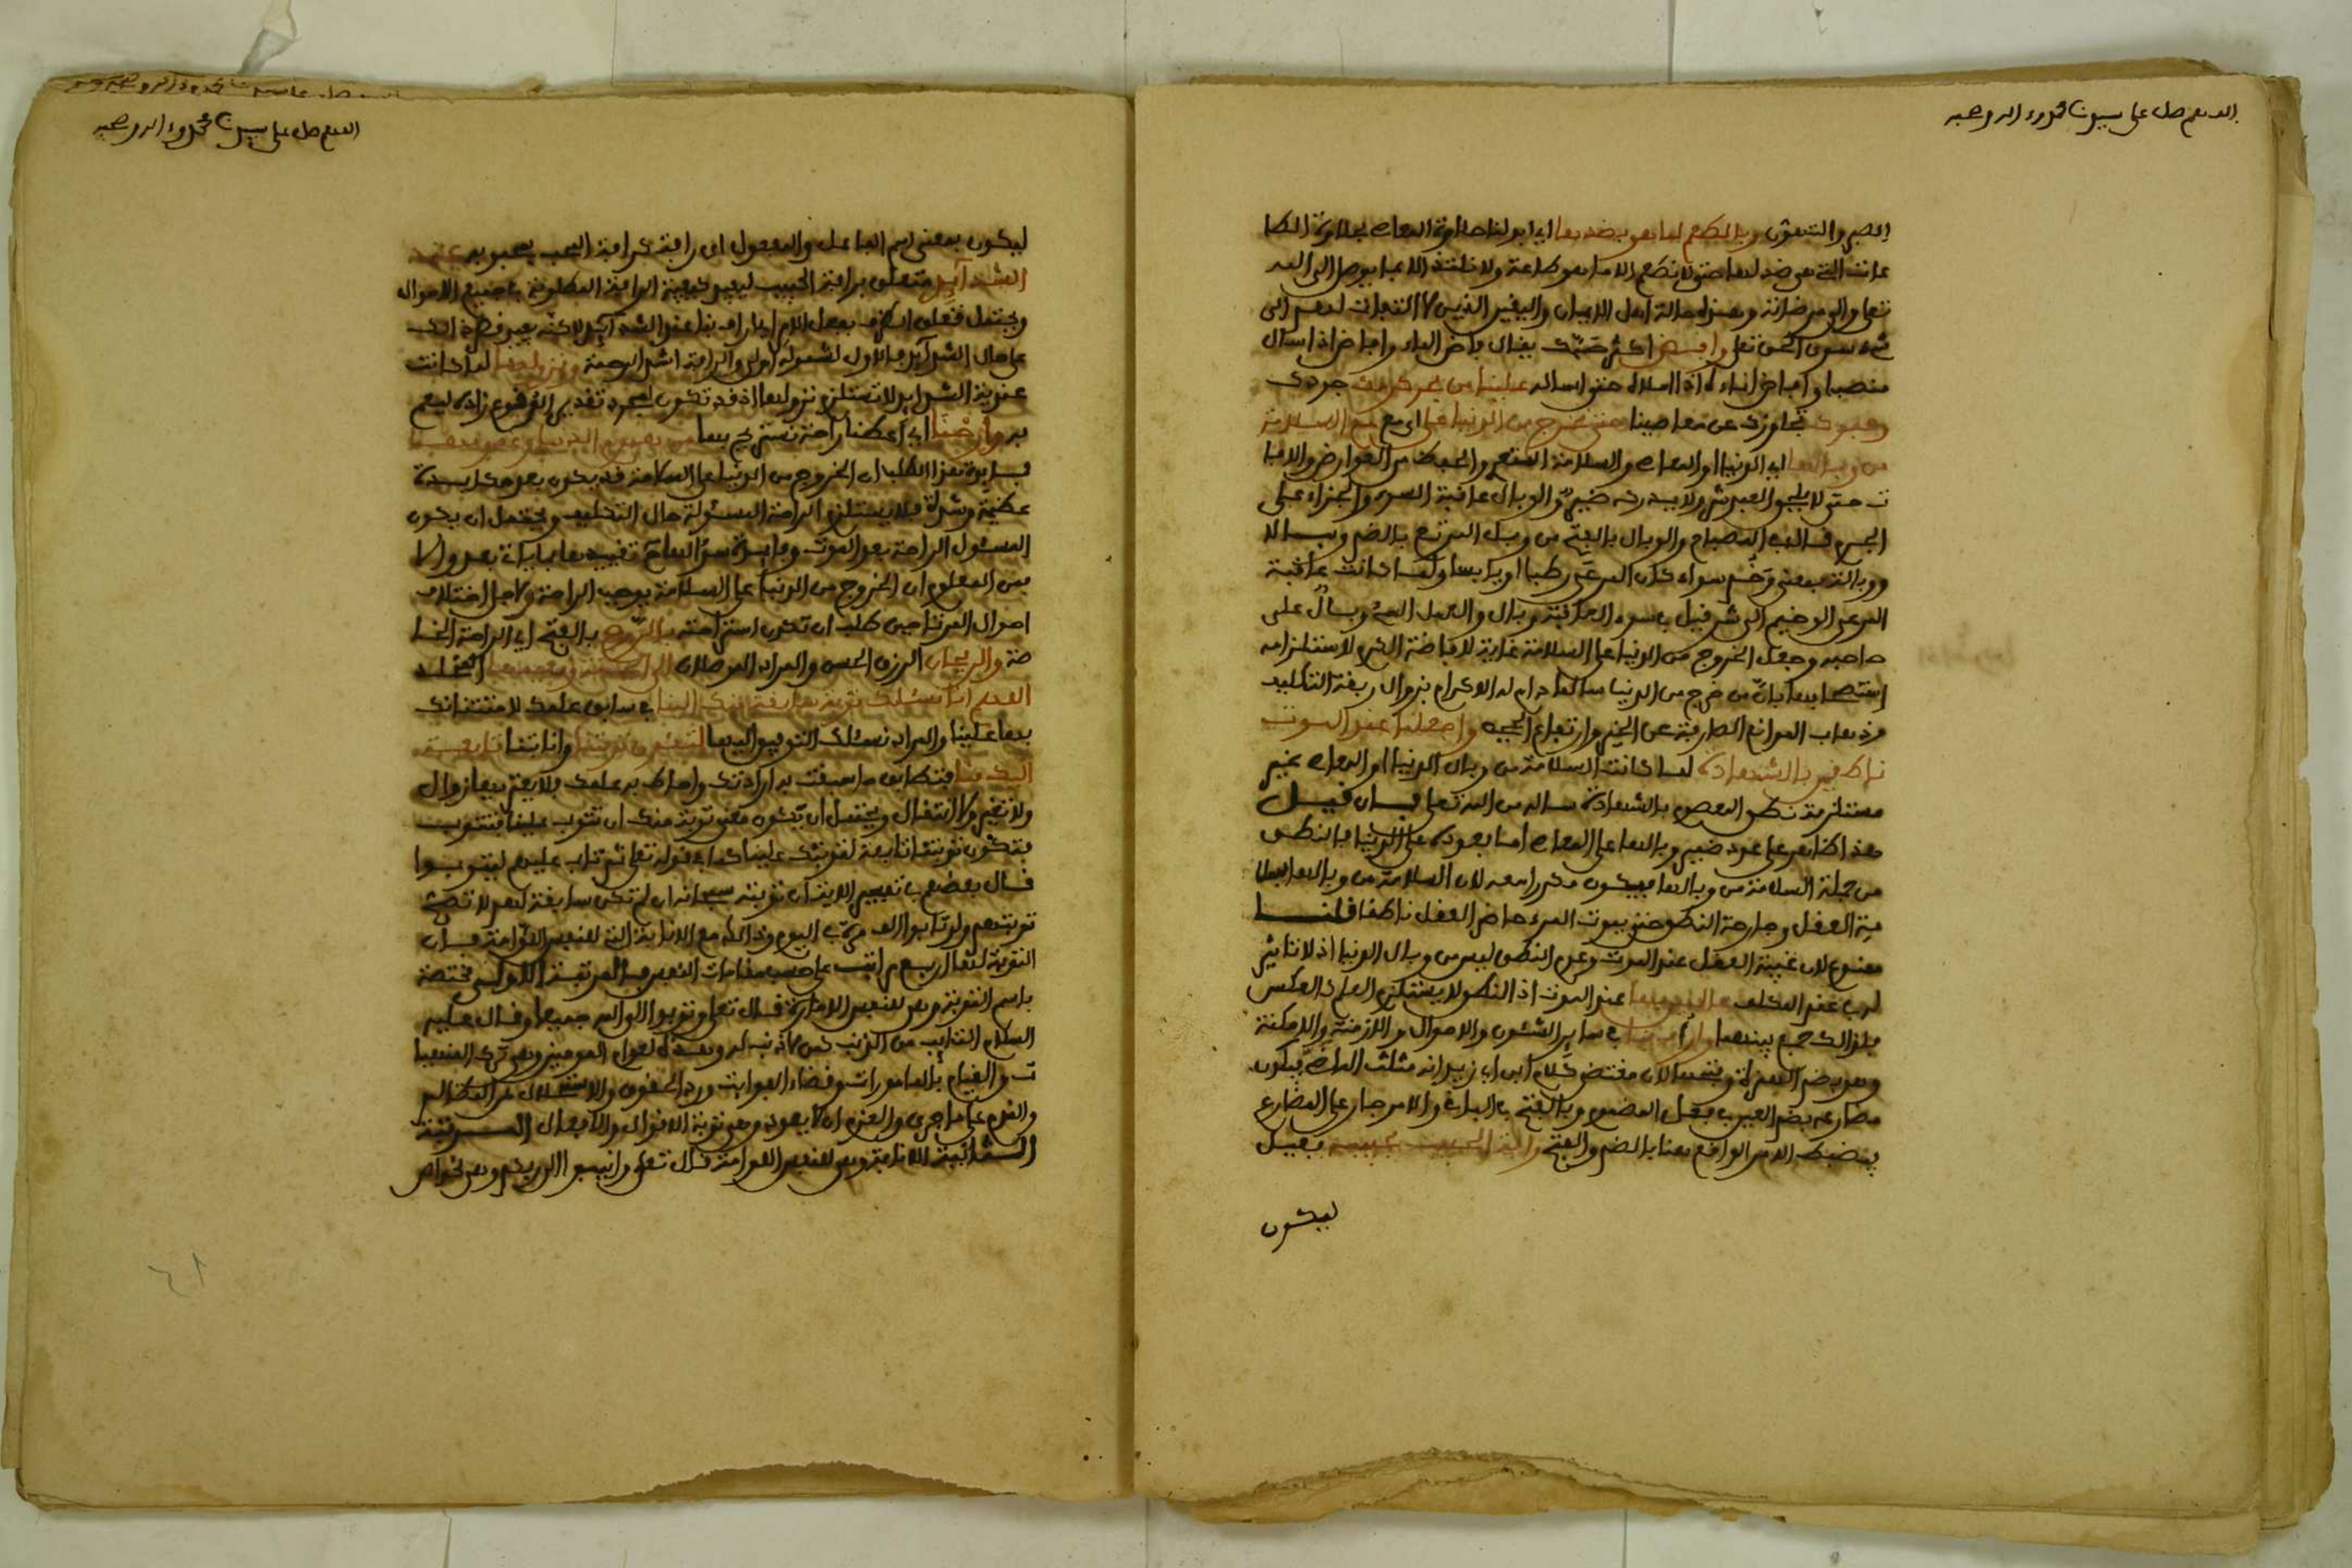 اللهم صل على سيدنا محمد وءاله وصحبه
الصبر والتشوق وبالطعم لما هو بضدها اي ابدلنا حلاوة المعاصي بحلاوة الطا
عات التي هي ضد لها حتى لا نطعم الا ما هو طاعة ولا نلتذ الا بما يوصل الى الله
تعلى والى مرضاته وهذه حالة اهل الايمان واليقين الذين لا التفات لهم الى
شيء سوى الحق تعلى وافض اكثر صبك يقال فاض الماء وافاض اذا سال
منصبا وافاض اناءه اذا املاه حتى اساله علينا من بحر كرمك جودك
وعفوك تجاوزك عن معاصينا حتى نخرج من الدنيا على اي مع السلامة
من وبالها اي الدنيا او المعاصي والسلامة الستر والحفظ من العوارض والافا
ت حتى لا يلحق العبد شر ولا يدركه ضير والوبال عاقبة السوء والجزاء على
الجرم قال في المصباح والوبال بالفتح من وبل المرتع بالضم وبالا
ووبالة بمعنى وخم سواء كان المرعى رطبا او يابسا ولما كانت عاقبة
المرعى الوخيم الى شر قيل في سوء العاقبة وبال والعمل السيء وبال على
صاحبه وجعل الخروج من الدنيا على السلامة غاية لافاضة الكرم لاستلزامه
استصحابها بان من خرج من الدنيا سالما دام له الاكرام بزوال ربقة التكليف
وذهاب الموانع الصارفة عن الخير وارتفاع الحجب واجعلنا عند الموت
ناطقين بالشهادة لما كانت السلامة من وبال الدنيا او المعاصي غير
مستلزمة نطق المعصوم بالشهادة سالها من الله تعلى فان قيل
هذا ظاهر على عود ضمير وبالها على المعاصي اما بعوده على الدنيا فالنطق
من جملة السلامة من وبالها فيكون مكررا معه لان السلامة من وبالها
مة العقل وجارحة النطق حتى يموت المرء حاضر العقل ناطقا قلنا
ممنوع لان غيبة العقل عند الموت وعدم النطق ليس من وبال الدنيا اذ لا تاثير
لهما عند المكلف عالمين بها عند الموت اذ النطق لا يستلزم العلم كالعكس
فلذلك جمع بينهما وارأف بنا في سائر الشئون والاحوال والازمنة والامكنة
وهو بضم الهمزة وفتحها لان مقتضى كلام ابي زيد انه مثلث الماضي فيكون
مضارعه بضم العين في فعل المضموم وبالفتح في الباقي والامر جار على المضارع
فيضبط الامر الواقع هنا بالضم والفتح رأفة الحبيب بحبيبه فعيل
ليكون
اللهم صل على سيدنا محمد وءاله وصحبه
ليكون بمعنى اسم الفاعل والمفعول اي رافة كرافة المحب بمحبوبه عند
الشدائد متعلق برافة الحبيب ليفيد كيفية الرافة المطلوبة في جميع الاحوال
ويحتمل تعلق الظرف بفعل الامر اي ارأف بنا عند الشدائد لاكنه يفيد قصر ذلك
على حال الشدائد فالاول لشموله اولى والرافة اشد الرحمة ونزولها لما كانت
عندية الشدائد لا تستلزم نزولها اذ قد تكون لمجرد تقدير الوقوع زاده ليعم
به وأرحنا اي اعطنا راحة نستريح بها من هموم الدنيا وغمومها
فايدة هذا الطلب ان الخروج من الدنيا على السلامة قد يكون بعد مكابدة
عظيمة وشدة فلا يستلزم الراحة المسئولة حال التكليف ويحتمل ان يكون
المسئول الراحة بعد الموت وفايدة سؤالها تقييدها بما ياتي بعد والا
فمن المعلوم ان الخروج من الدنيا على السلامة يوجب الراحة ولاجل اختلاف
احوال المرتاحين طلب ان تكون استراحته بالروح بالفتح اي الراحة الخا
صة والريحان الرزق الحسن والمراد الموصلان الى الجنة ونعيمها الخلد
اللهم انا نسئلك توبة سابقة منك الينا في سابق علمك لامتنانك
بها علينا والمراد نسئلك التوفيق اليها لتكون توبتنا وانابتنا تابعة
اليك منا فتطابق ما سبقت به ارادتك واحاط به علمك فلا يعتريها زوال
ولا تغير ولا انتقال ويحتمل ان يكون معنى توبة منك ان تتوب علينا فنتوب
فتكون توبتنا تابعة لتوبتك علينا كما في قوله تعلى ثم تاب عليهم ليتوبوا
قال بعضهم في تفسير الاية ان توبته سبحانه ان لم تكن سابقة لهم لا تصح
توبتهم ولو تابوا الف مرة في اليوم وذلك مع الانابة التي للنفس اللوامة فان
التوبة لها اربع مراتب على حسب مقامات النفس فالمرتبة الاولى مختصة
باسم التوبة وهي للنفس الامارة قال تعلى وتوبوا الى الله جميعا وقال عليه
السلام التائب من الذنب كمن لا ذنب له وهذه لعوام المومنين وهي ترك المنهيا
ت والقيام بالمامورات وقضاء الفوايت ورد الحقوق والاستحلال من المظالم
والندم على ما جرى والعزم ان لا يعود وهو توبة الاقوال والافعال المرتبة
الثانية الانابة وهي للنفس اللوامة قال تعلى وانيبوا الى ربكم وهي لخواص